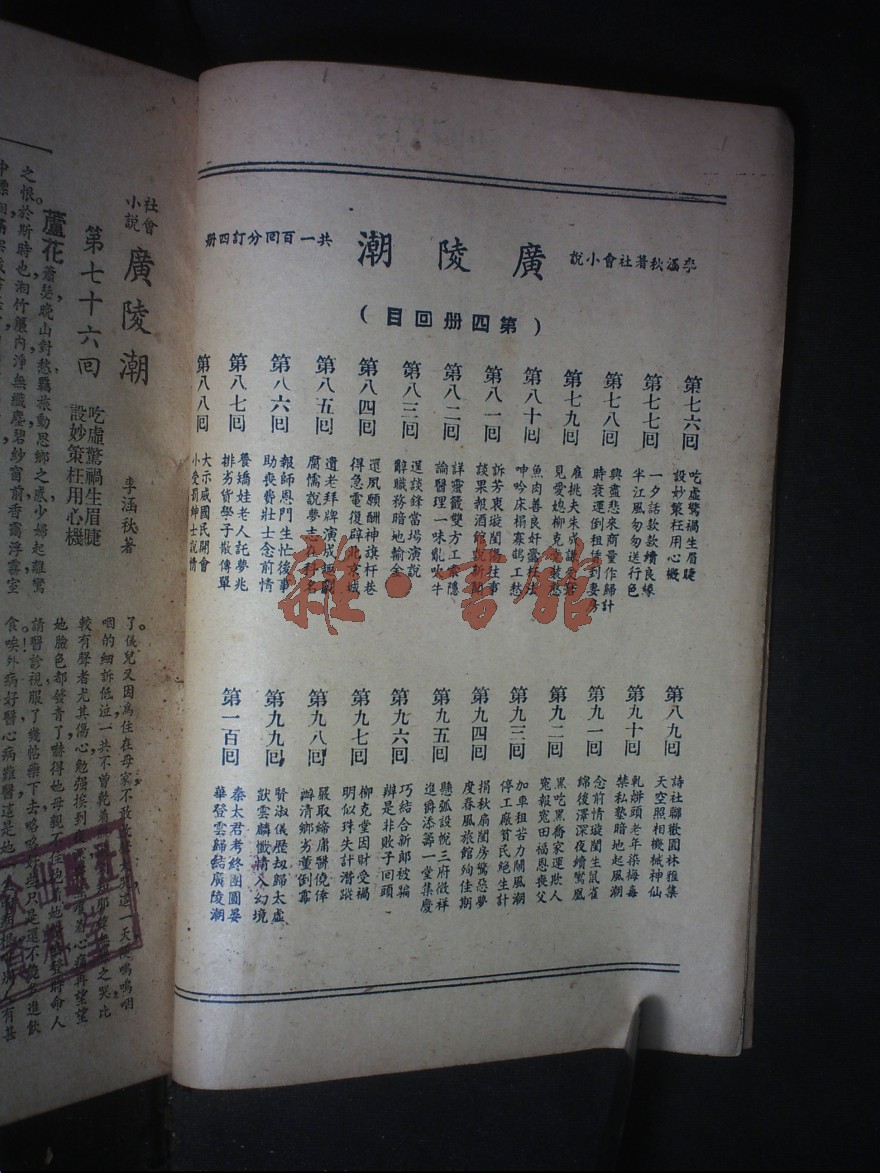 李涵秋著社會小說
廣陵潮
共一百回分訂四册
(第四册回目)
第七六回
吃虛驚禍生眉睫
設妙策枉用心機
第七七回
一夕話款款續良緣
半江風匆匆送行色
第七八回
興盡悲來商量作歸計
時衰運倒租賃到妻孥
第七九回
見愛媳柳克堂裝憨
第八十回
魚肉善良奸蠹枉法
呻吟床榻寡鵠工愁
第八一回
訴芳衷璇閨傷往事
談果報酒館說新聞
第八二回
詳靈籤雙方工索隱
論醫理一味亂吹牛
第八三回
逞談鋒當場演說
辭職務暗地輸金
第八四回
還夙願酬神旗杆巷
得急電復辟北京城
第八五回
遺老拜牌演成趣劇
腐儒說夢志在科名
第八六回
報師恩門生忙後事
助喪費壯士念前情
第八七回
養嬌娃老人託夢兆
排劣貨學子散傳單
第八八回
大示威國民開會
小受罰紳士說情
第八九回
詩社聯歡園林雅集
天空照相機械神仙
第九十回
軋姘頭老年染梅毒
禁私塾暗地起風潮
第九一回
念前情璇閨生鼠雀
綿後澤深夜續鸞凰
第九二回
黑吃黑喬家運賍人
冤報冤田福恩喪父
第九三回
加車租苦力鬧風潮
停工廠貧民絕生計
第九四回
捐秋扇閨房驚惡夢
度春風旅館絢佳期
第九五回
懸弧設帨三房徵祥
進爵添籌一堂集慶
第九六回
巧結合新郎被騙
辦是非敗子回頭
第九七回
柳克堂因財受禍
明似珠失計潛蹤
第九八回
嚴取締庸醫倖倖
辦清鄉劣董倒霉
第九九回
賢淑儀歷劫歸太虛
獃雲麟懺情入幻境
第一百回
秦太君考終團圓宴
華登雲歸結廣陵潮
社會小說
廣陵潮
李涵秋著
第七十六回
吃虛驚禍生眉睫
設妙策枉用心機
蘆花蕭瑟，晚山對愁，羈旅動思鄉之感，少婦起離鸞
之恨。於斯時也，湘竹簾內，淨無纖塵，碧紗窗前，香靄浮雲，室
較有聲者尤其傷心，勉强挨到
請醫診視，服了幾帖藥下去
雜·書館